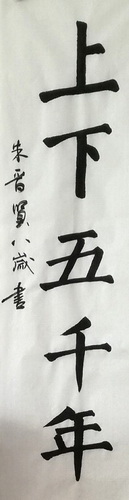 上下五千年
朱晋贤八岁书